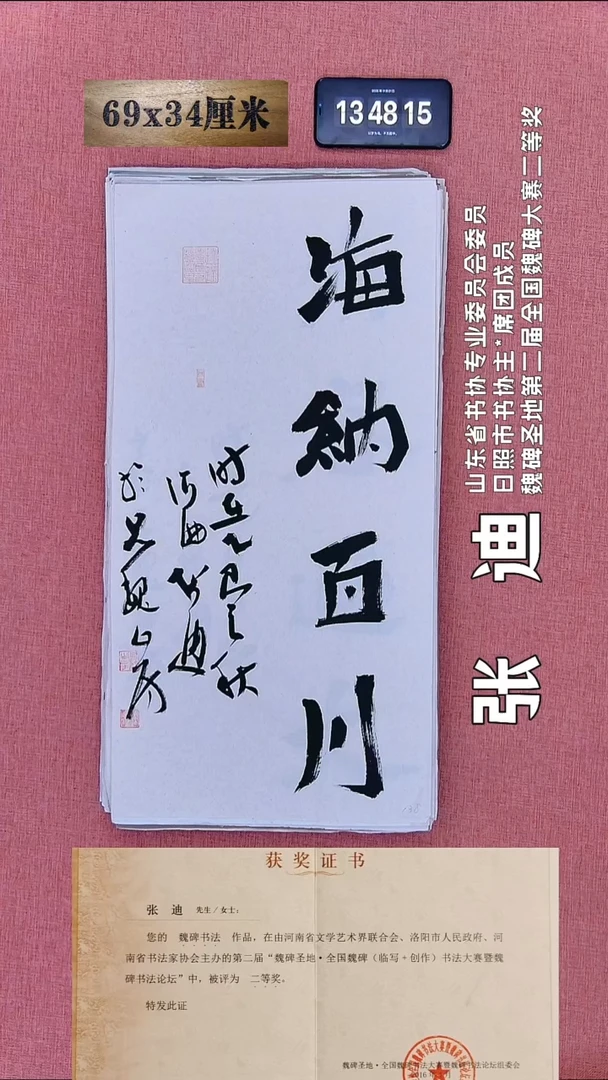 69x34厘米
13 48 15
海納百川
山东省书协专业委员会委员
日照市书协主*席团成员
魏碑圣地第二届全国魏碑大赛二等奖
张 迪
获奖证书
张 迪 先生/女士：
您的 魏碑书法 作品，在由河南省文学艺术界联合会、洛阳市人民政府、河
南省书法家协会主办的第二届“魏碑圣地·全国魏碑（临写+创作）书法大赛暨魏
碑书法论坛”中，被评为 二等奖。
特发此证
魏碑圣地·全国魏碑书法大赛暨魏碑书法论坛组委会